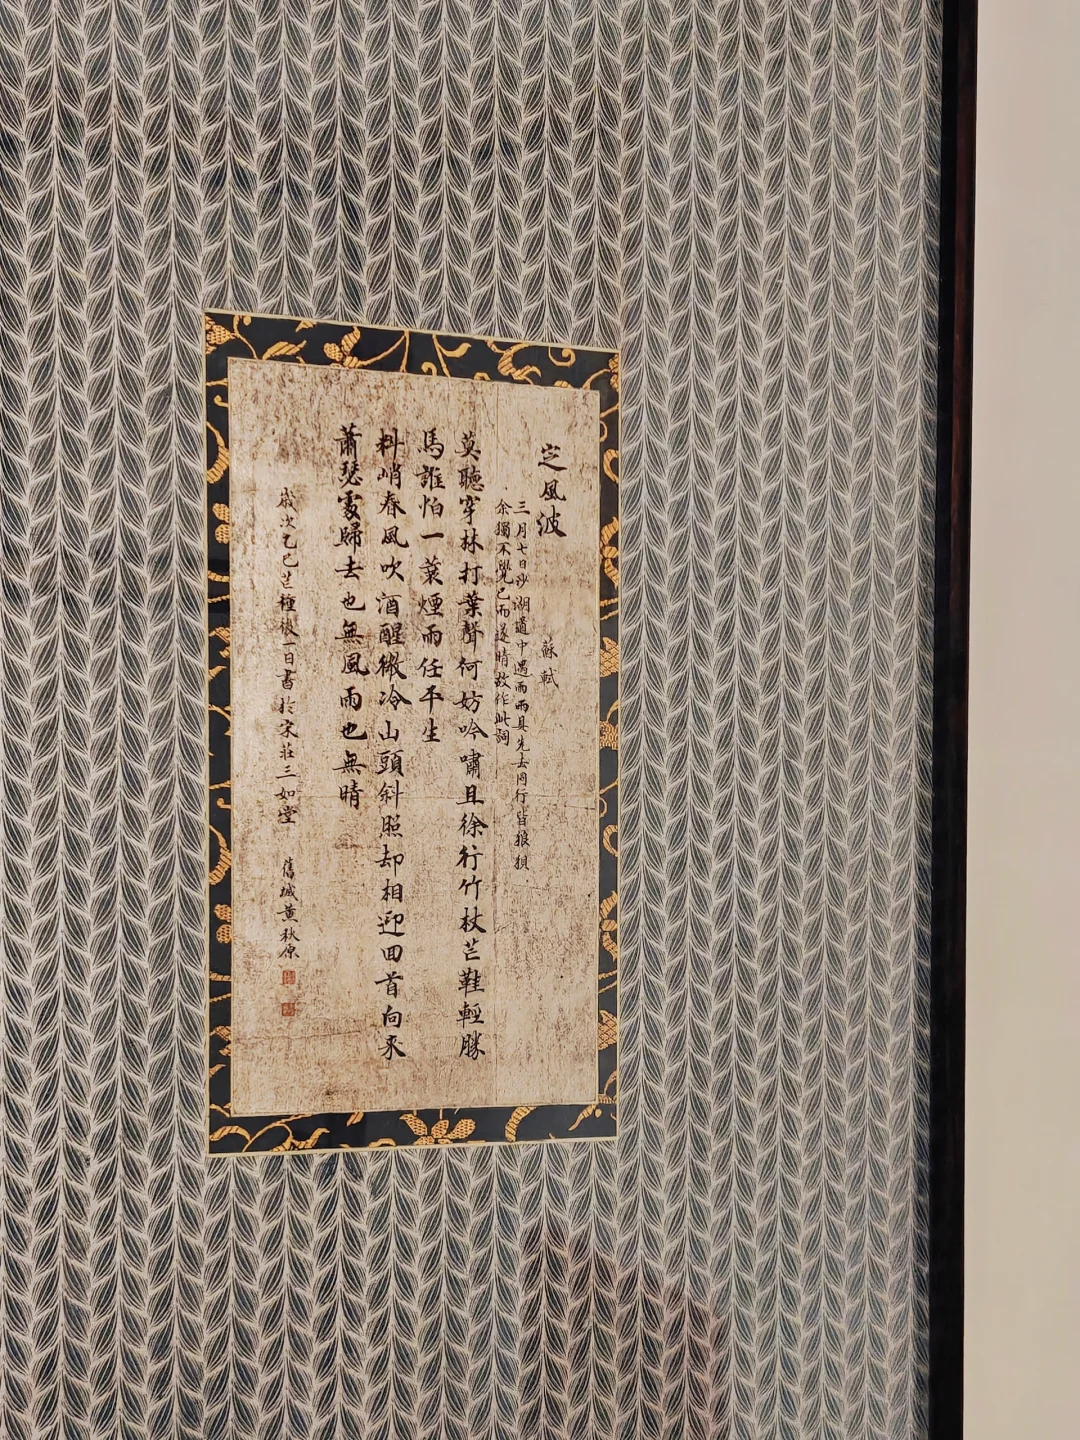 定風波
蘇軾
三月七日沙湖道中遇雨雨具先去同行皆狼狽
余獨不覺已而遂晴故作此詞
莫聽穿林打葉聲何妨吟嘯且徐行竹杖芒鞋輕勝
馬誰怕一蓑煙雨任平生
料峭春風吹酒醒微冷山頭斜照却相迎回首向来
蕭瑟處歸去也無風雨也無晴
歲次乙巳芒種後一日書於宋莊三如堂
舊城黄秋原